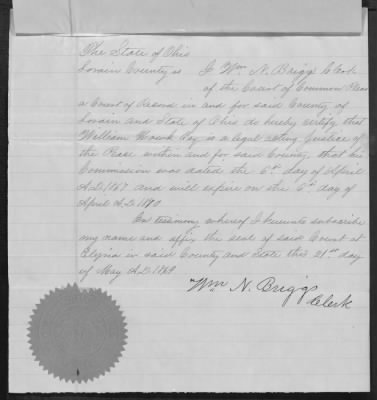 The State of Ohio
Lorain County ss I Wm N. Briggs Clerk
of the Court of Common Pleas
a Court of Record in and for said County of
Lorain and State of Ohio do hereby certify that
William is a legal acting Justice of
the Peace within and for said County, that his
Commission was dated the 6th day of April
A.D. 1867 and will expire on the 6th day of
April A.D. 1870
In testimony whereof I hereunto subscribe
my name and affix the seal of said Court at
Elyria in said County and State this 21st day
of May A.D. 1869
Wm N. Briggs
Clerk